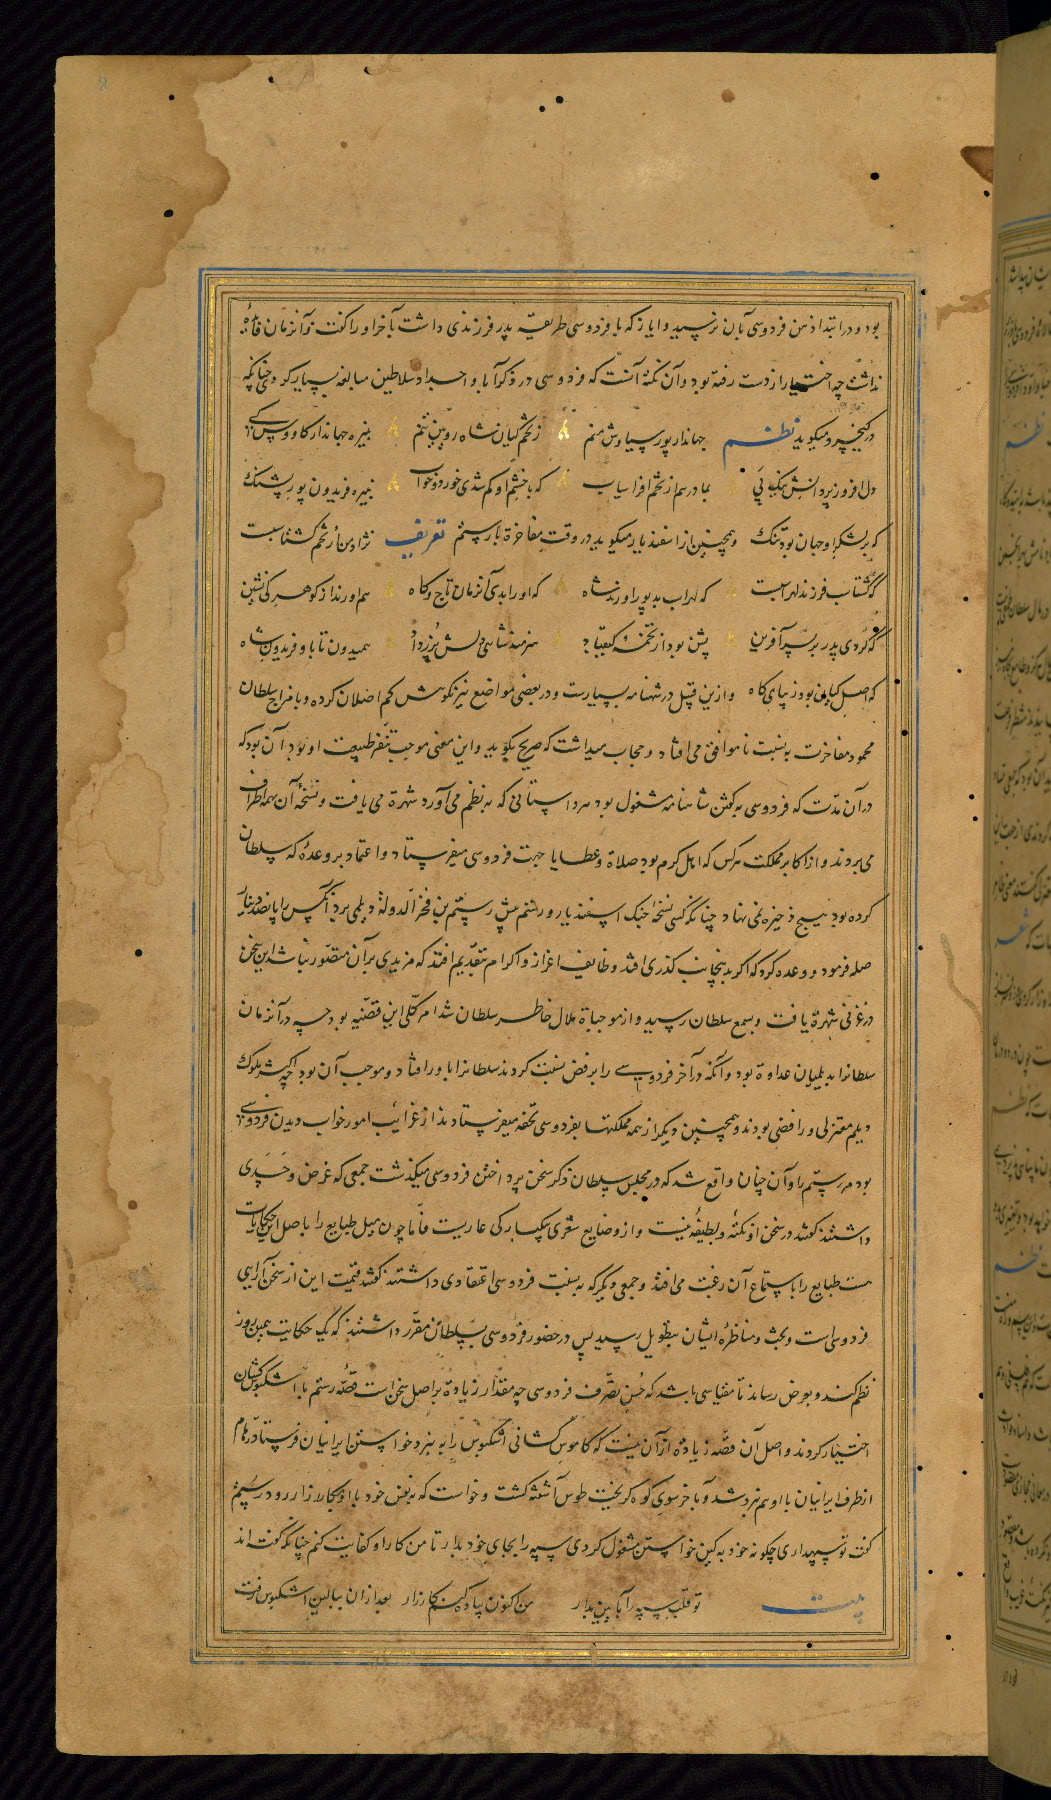 بود و در ابتدا ذهن فردوسی بآن نرسید و ایاز که با فردوسی طریقهٔ پدر فرزندی داشت بآخر او را گفت و آنزمان فائدهٔ
نداشت چه اختیار از دست رفته بود و آن نکته آنست که فردوسی در ذکر آبا و اجداد سلاطین مبالغه بسیار کردی چنانکه
در کیخسرو میگوید نظم جهاندار پور سیاوش منم ز تخم کیان شاه رویین تنم نبیره جهاندار کاووس کی
دل افروز پردانش نیک پی بمادر هم از تخم افراسیاب که با خشم او گم شدی خورد و خواب نبیره فریدون پور پشنگ
که بر لشکر او جهان بود تنگ و همچنین از اسفندیار میگوید در وقت مفاخرة با رستم تعریف نژاد من از تخم گشتاسبست
که گشتاسب فرزند لهراسبست که لهراسب بد پور اورند شاه که او را بدی آنزمان تاج و گاه هم اورند از گوهر کی نشین
که کردی پدر بر پسر آفرین پشین بود از تخمهٔ کیقباد هنرمند شاهی دلش پر ز داد همیدون تا با و فریدون شاه
که اصل کیان بود و زیبای گاه و ازین قبیل در شهنامه بسیارست و در بعضی مواضع نیز نکوهش کم اصلان کرده و با مزاج سلطان
محمود مفاخرت به نسبت ناموافق می افتاد و حجاب میداشت که صریح بگوید و این معنی موجب تنفر طبیعت او بود آن بود که
در آن مدت که فردوسی بگفتن شاهنامه مشغول بود هر داستانی که به نظم می آورد شهرة می یافت و نسخهٔ آن بهمه اطراف
می بردند و از اکابر مملکت هر کس که اهل کرم بود صلاة و عطایا جهت فردوسی میفرستاد و اعتماد بر وعدهٔ که سلطان
کرده بود هیچ ذخیره نمی نهاد چنانکه کسی نسخهٔ جنک اسفندیار و رستم پیش رستم بن فخر الدولهٔ دیلمی برد آنکس را پانصد دینار
صله فرمود و وعده کرد که اگر بدینجانب گذری افتد وظائف اعزاز و اکرام بتقدیم افتد که مزیدی بر آن متصور نباشد این سخن
در غزنی شهرة یافت و بسمع سلطان رسید و از موجبات ملال خاطر سلطان شد امر کلی این قضیه بود چه در آنزمان
سلطانرا بدیلمیان عداوة بود و آنکه در آخر فردوسی را برفض نسبت کردند سلطانرا باور افتاد و موجب آن بود که اکثر ملوک
دیلم معتزلی و رافضی بودند و همچنین دیگر از همه مملکتها بفردوسی تحفه میفرستادند از غرائب امور خواب دیدن فردوسی
بود مر رستم را و آن چنان واقع شد که در مجلس سلطان ذکر سخن پرداختن فردوسی میگذشت جمعی که غرض و حسدی
داشتند گفتند در سخن او نکتهٔ و لطیفهٔ نیست و از وضایع شعری یکبارگی عاریست فاما چون میل طبایع را باصل این حکایات
هست طبایع را باستماع آن رغبت می افتد و جمعی دیگر که به نسبت فردوسی اعتقادی داشتند گفتند قیمت این از سخن آرایی
فردوسی است و بحث و مناظرهٔ ایشان بتطویل رسید پس در حضور فردوسی بسلطان مقرر داشتند که یک حکایت همین روز
نظم کند و بعرض رساند تا مقیاسی باشد که حسن تصرف فردوسی چه مقدار زیادة بر اصل سخن است قصهٔ رستم با اشکبوس کشان
اختیار کردند و اصل آن قصه زیاده از آن نیست که کاموس کشانی اشکبوس را به نبرد خواستن ایرانیان فرستاد رهام
از طرف ایرانیان با او هم نبرد شد و بآخر سوی کوه گریخت طوس آشفته گشت و خواست که بنفس خود با او بکارزار رود رستم
گفت تو سپهداری چگونه خود به کین خواستن مشغول گردی سپه را بجای خود بدار تا من کار او کفایت کنم چنانکه گفته اند
بیت تو قلب سپه را بآیین بدار من اکنون پیاده کنم کارزار بعد از آن ببالین اشکبوس رفت